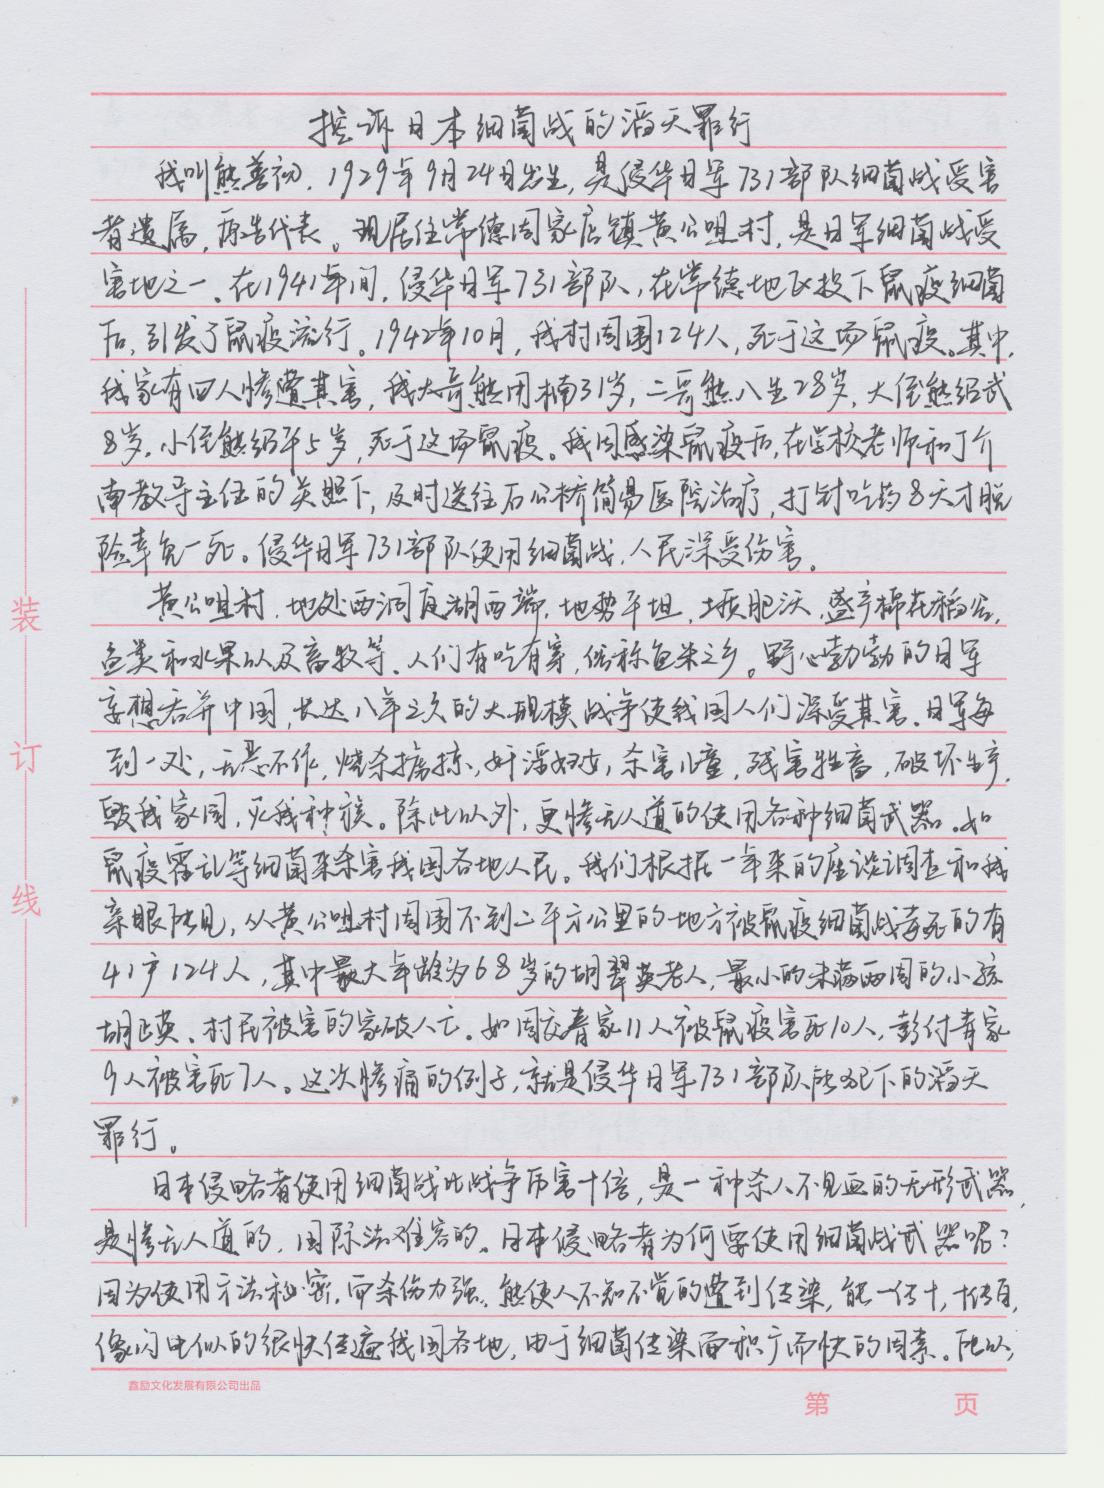 控诉日本细菌战的滔天罪行
我叫熊善初，1929年9月24日出生，是侵华日军731部队细菌战受害
者遗属，原告代表。现居住常德周家店镇黄公咀村，是日军细菌战受
害地之一。在1941年间，侵华日军731部队，在常德地区投下鼠疫细菌
后，引发了鼠疫流行。1942年10月，我村周围124人，死于这场鼠疫。其中，
我家有四人惨遭其害，我大哥熊用楠31岁，二哥熊八生28岁，大侄熊绍武
8岁，小侄熊绍平5岁，死于这场鼠疫。我因感染鼠疫后，在学校老师和丁介
南教导主任的关照下，及时送往石公桥简易医院治疗，打针吃药8天才脱
险幸免一死。侵华日军731部队使用细菌战，人民深受伤害。
黄公咀村，地处西洞庭湖西端，地势平坦，土质肥沃，盛产棉花稻谷，
鱼类和水果以及畜牧等、人们有吃有穿，俗称鱼米之乡。野心勃勃的日军
妄想吞并中国，长达八年之久的大规模战争使我国人们深受其害、日军每
到一处，无恶不作，烧杀掳掠，奸淫妇女，杀害儿童，残害牲畜，破坏生产，
毁我家园，灭我种族。除此以外，更惨无人道的使用各种细菌武器。如
鼠疫霍乱等细菌来杀害我国各地人民。我们根据一年来的座谈调查和我
亲眼所见，从黄公咀村周围不到二平方公里的地方被鼠疫细菌战害死的有
41户124人，其中最大年龄为68岁的胡翠英老人，最小的未满两周的小孩
胡正英、村民被害的家破人亡。如周交春家11人被鼠疫害死10人，彭付青家
9人被害死7人。这次惨痛的例子，就是侵华日军731部队所犯下的滔天
罪行。
日本侵略者使用细菌战比战争厉害十倍，是一种杀人不见血的无形武器，
是惨无人道的，国际法难容的。日本侵略者为何要使用细菌战武器呢？
因为使用方法秘密，而杀伤力强。能使人不知不觉的遭到传染，能一传十，十传百，
像闪电似的很快传遍我国各地，由于细菌传染面积广而快的因素。所以，
装
订
线
鑫励文化发展有限公司出品
第 页